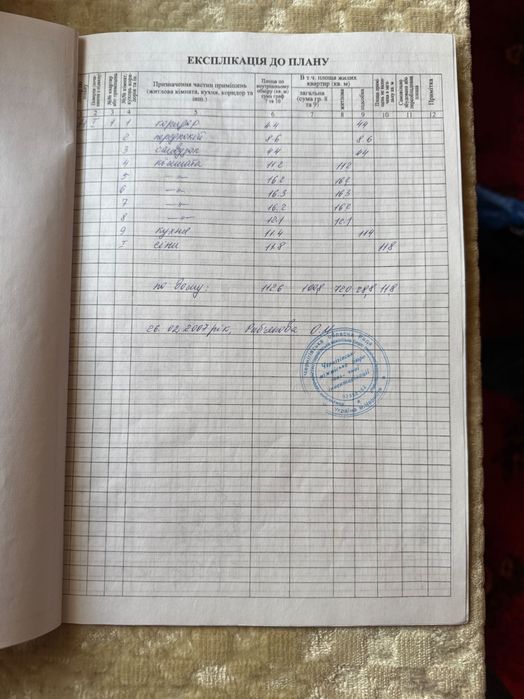 ЕКСПЛІКАЦІЯ ДО ПЛАНУ
№№ квартир або приміщень
Призначення частин приміщень (житлова кімната, кухня, коридор та інш.)
Площа по внутрішньому обміру (кв. м) сума граф 7 та 10
В т.ч. площа жилих квартир (кв. м)
загальна (сума гр. 8 та 9)
житлова
підсобна
Примітка
3 4 5 6 7 8 9 10 11 12
I 1 1 коридор 4.4 4.4
2 8.6 8.6
3 санвузол 4.4 4.4
4 кімната 11.2 11.2
5 —"— 16.2 16.2
6 —"— 16.3 16.3
7 —"— 16.2 16.2
8 —"— 12.1 12.1
9 кухня 11.4 11.4
I сіни 11.8 11.8
по вому: 112.6 100.8 72.0 28.8 11.8
26.02.2007 рік,
Чернігівська обласна Рада
Чернігівське міжміське бюро
технічної інвентаризації
Україна